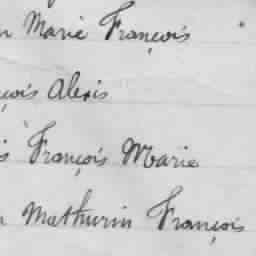 Marie François
Alexis
François Marie
Mathurin François